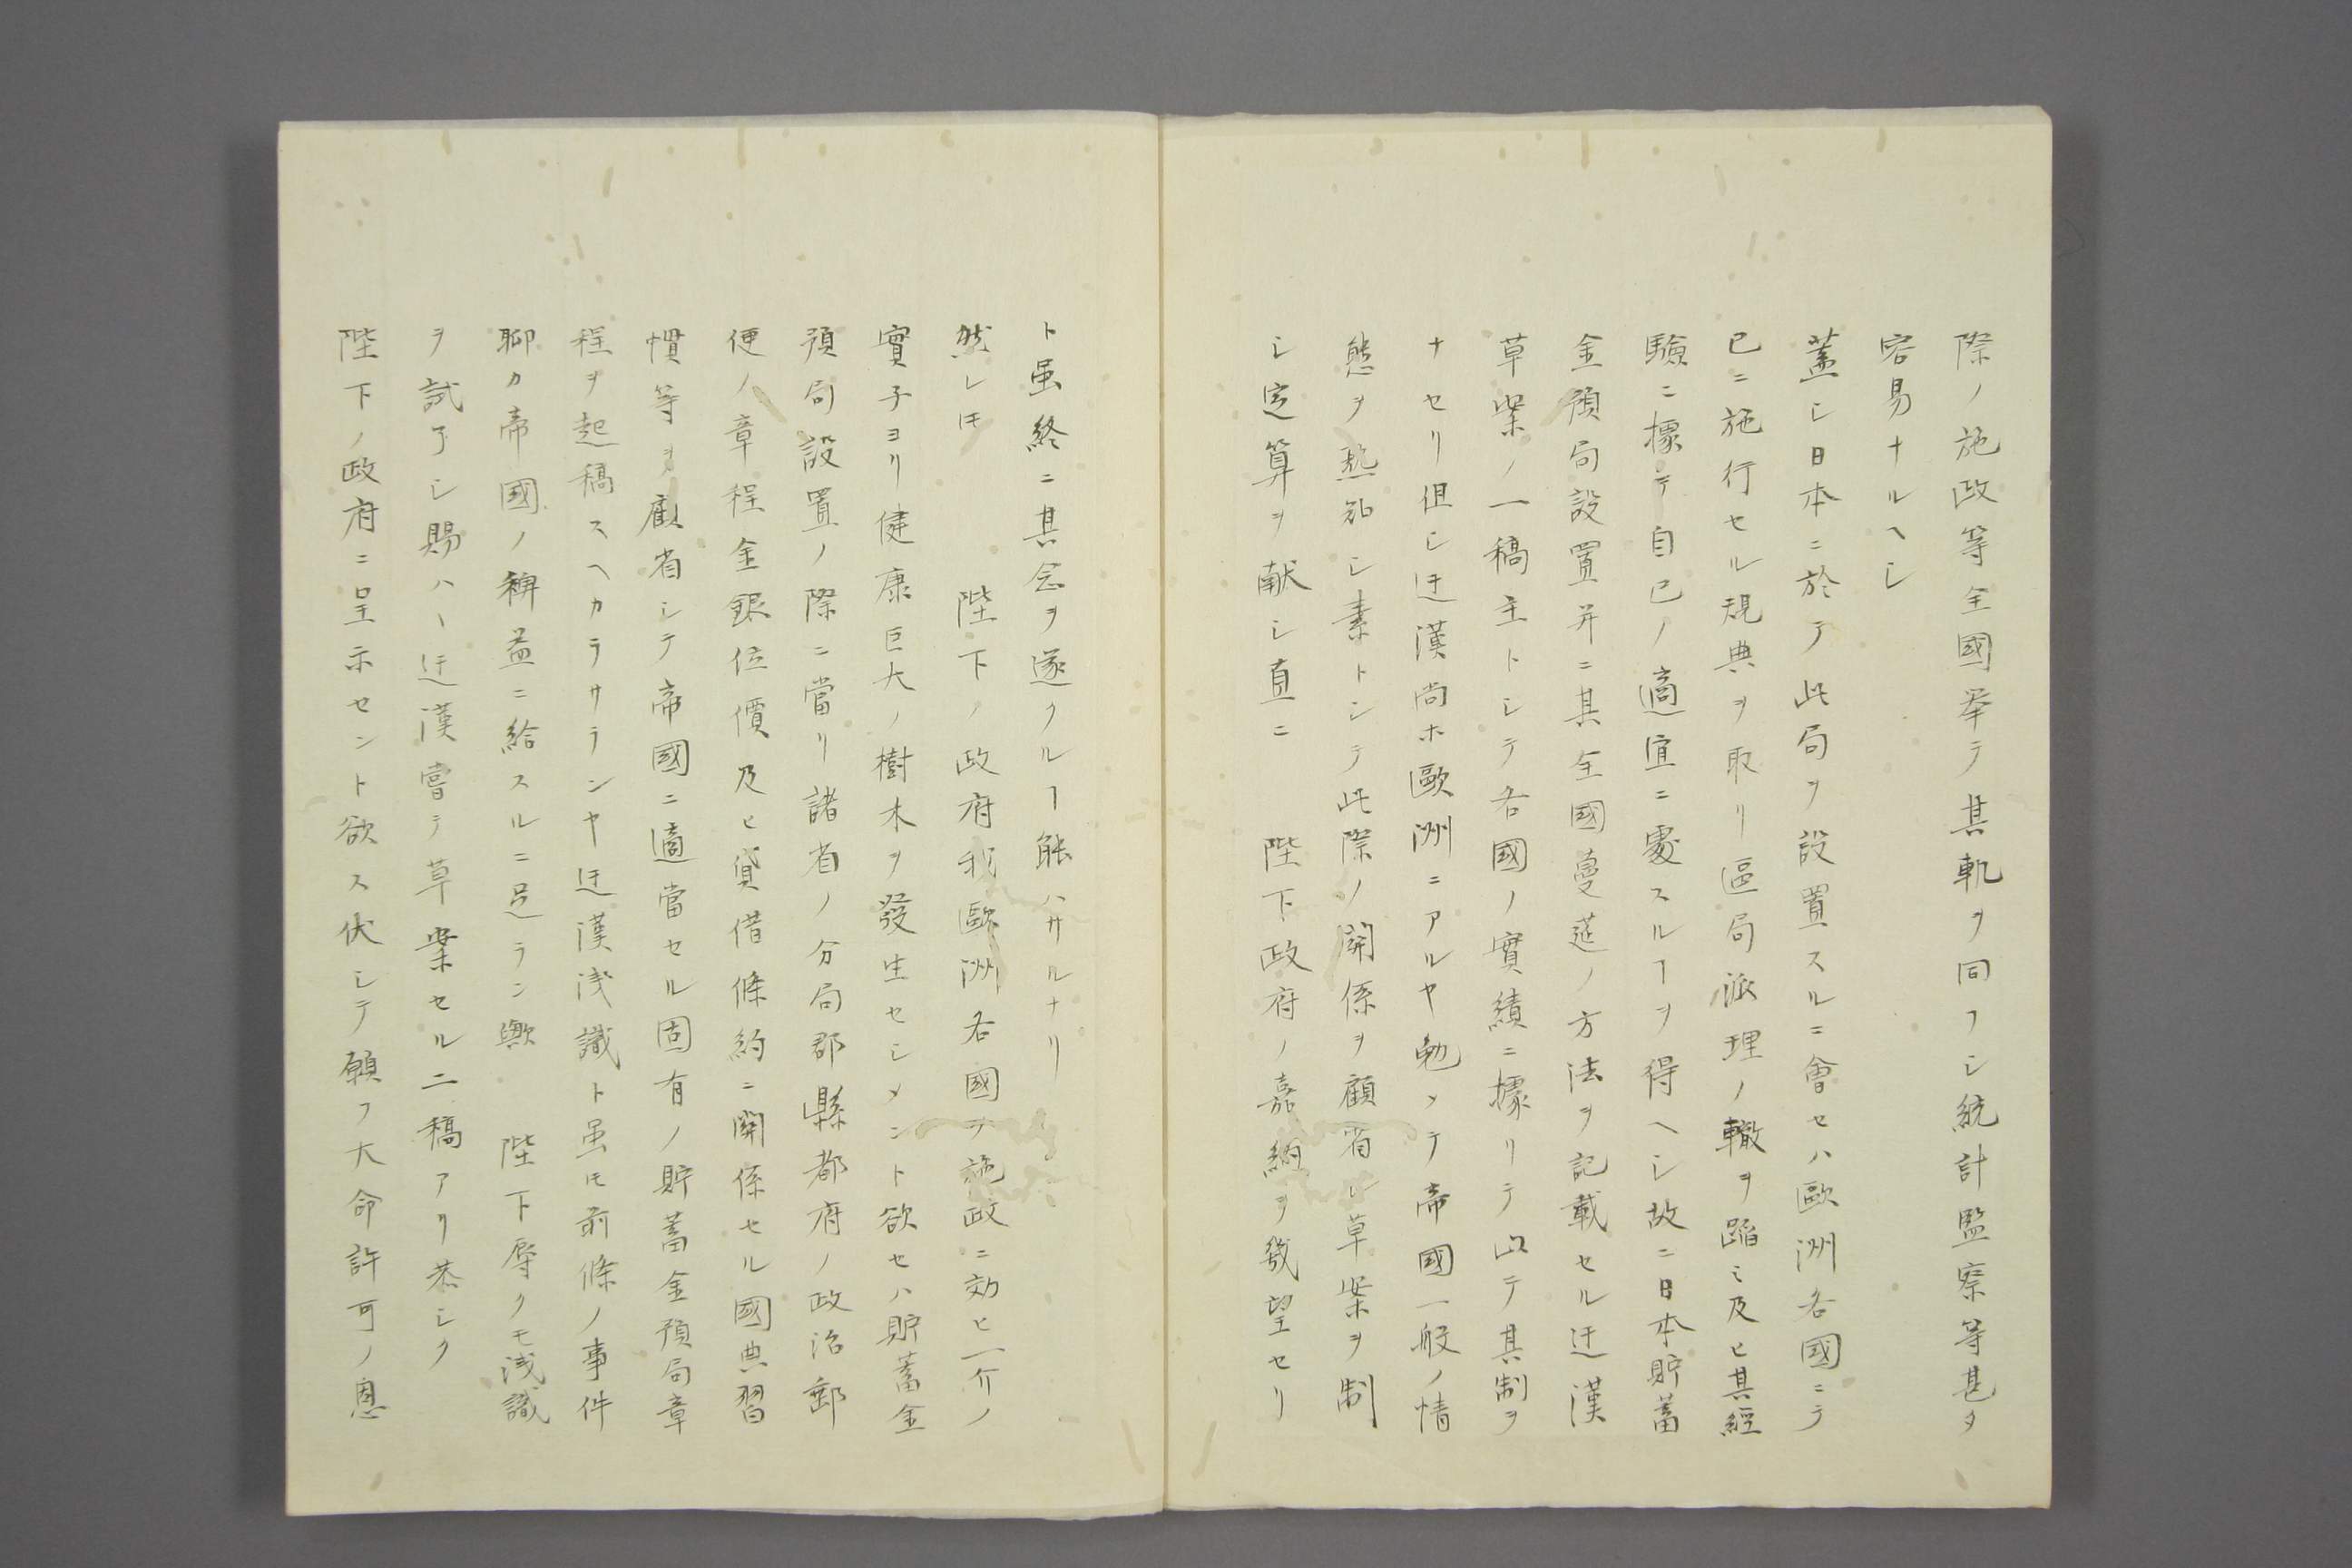 際ノ施政等全國挙テ其軌ヲ同フシ統計監察等甚タ
容易ナルヘシ
蓋シ日本ニ於テ此局ヲ設置スルニ會セハ歐洲各國ニテ
已ニ施行セル規典ヲ取リ區局派理ノ轍ヲ蹈ミ及ヒ其經
驗ニ據テ自己ノ適宜ニ處スルヿヲ得ヘシ故ニ日本貯蓄
金預局設置并ニ其全國蔓莚ノ方法ヲ記載セル迂漢
草案ノ一稿主トシテ各國ノ實績ニ據リテ以テ其制ヲ
ナセリ但シ迂漢尚ホ歐洲ニアルヤ勉メテ帝國一般ノ情
態ヲ熟知シ素トシテ此際ノ関係ヲ顧省シ草案ヲ制
シ定算ヲ献シ直ニ　陛下政府ノ嘉納ヲ幾望セリ
ト虽終ニ其念ヲ遂クルヿ能ハサルナリ
然レ𪜈　陛下ノ政府我歐洲各國ヲ施政ニ効ヒ一介ノ
實子ヨリ健康巨大ノ樹木ヲ發生セシメント欲セハ貯蓄金
預局設置ノ際ニ當リ諸省ノ分局郡縣都府ノ政治郵
便ノ章程金銀位價及ヒ貸借條約ニ関係セル國典習
慣等ヲ顧省シテ帝國ニ適當セル固有ノ貯蓄金預局章
程ヲ起稿スヘカラサランヤ迂漢浅識ト虽𪜈前條ノ事件
聊カ帝國ノ裨益ニ給スルニ足ラン歟　陛下辱クモ浅識
ヲ試了シ賜ハヽ迂漢嘗テ草案セル二稿アリ恭シク
陛下ノ政府ニ呈示セント欲ス伏シテ願フ大命許可ノ恩